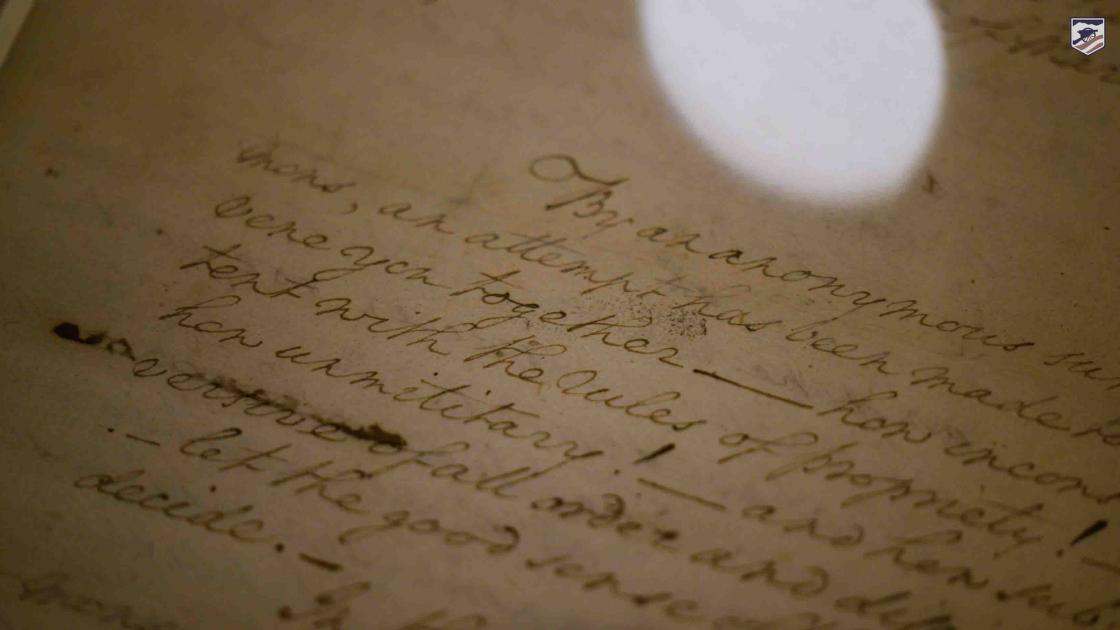 By an anonymous su
mons, an attempt has been made
vene you together — how incons
tent with the rules of propriety! —
how unmilitary! — and how sub
versive of all order and di
— let the good sense
decide. — In th